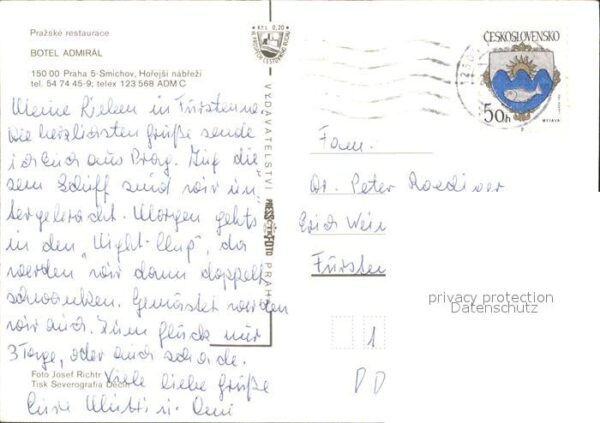 Pražské restaurace
BOTEL ADMIRÁL
150 00 Praha 5-Smíchov, Hořejší nábřeží
tel. 54 74 45-9; telex 123 568 ADM C
Meine Lieben in Fürstenwa.
Die herzlichsten Grüße sende
ich Euch aus Prag. Auf die
sem Schiff sind wir un
tergebracht. Morgen gehts
in den "Night-Clup", da
werden wir dann doppelt
schwanken. Gemästet werden
wir auch. Zum Glück nur
3 Tage, oder auch schade.
Viele liebe Grüße
Eure Mutti u. Omi
Foto Josef Richtr
Tisk Severografia Děčín
Kčs 0,20
VYDAVATELSTVÍ
PRESSFOTO
PRAHA
ČESKOSLOVENSKO
50h
MYJAVA
Fam.
Dr. Peter
Erich Wein
Fürsten
privacy protection
Datenschutz
1
DD